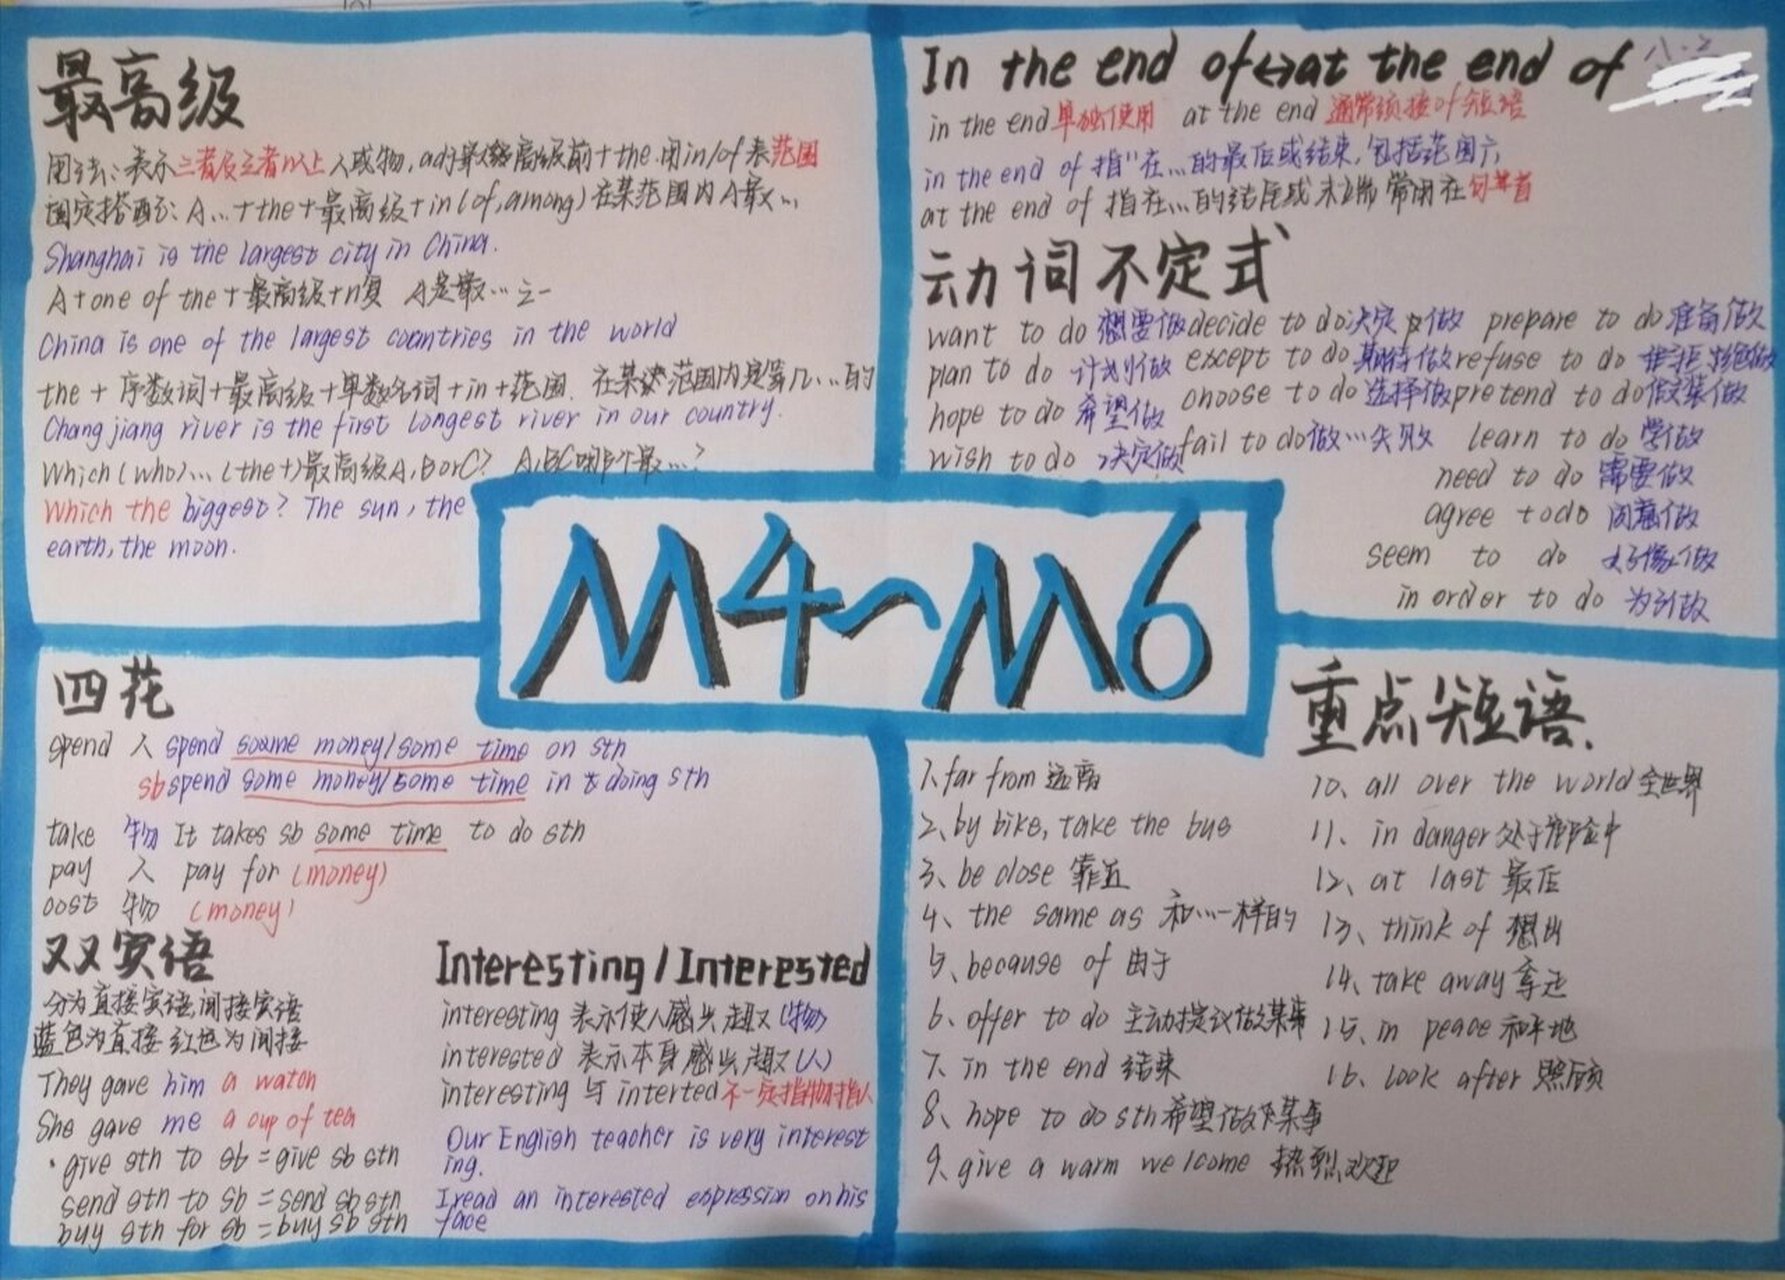 最高级
用法：表示三者及三者以上人或物，adj最高级前+the.用in/of表范围
固定搭配：A...+the+最高级+in(of,among)在某范围内A最...
Shanghai is the largest city in China.
A+one of the+最高级+n复 A是最...之一
China is one of the largest countries in the world
the+序数词+最高级+单数名词+in+范围. 在某范围内是第几...的
Changjiang river is the first longest river in our country.
Which(who)...(the+)最高级A,BorC? A,B,C哪个最...?
Which the biggest? The sun, the
earth, the moon.
In the end of↔at the end of
八.2
in the end单独使用 at the end 通常须接of短语
in the end of 指"在...的最后或结束,包括范围广
at the end of 指在...的结尾或末端 常用在句首
动词不定式
want to do 想要做 decide to do决定做 prepare to do准备做
plan to do 计划做 except to do期待做 refuse to do 拒绝做
hope to do 希望做 choose to do选择做 pretend to do假装做
wish to do 决定做 fail to do做...失败 learn to do 学做
need to do 需要做
agree to do 同意做
seem to do 好像做
in order to do 为了做
M4~M6
四花
spend 人 spend some money/some time on sth
sb spend some money/some time in doing sth
take 物 It takes sb some time to do sth
pay 人 pay for (money)
cost 物 (money)
双宾语
分为直接宾语,间接宾语
蓝色为直接 红色为间接
They gave him a watch
She gave me a cup of tea
·give sth to sb=give sb sth
send sth to sb=send sb sth
buy sth for sb=buy sb sth
Interesting/Interested
interesting 表示使人感兴趣(物)
interested 表示本身感兴趣(人)
interesting 与 interted不一定指物指人
Our English teacher is very interest
ing.
I read an interested expression on his
face
重点短语.
1.far from 远离
2、by bike, take the bus
3、be close 靠近
4、the same as 和...一样的
5、because of 由于
6、offer to do 主动提议做某事
7、in the end 结束
8、hope to do sth希望做某事
9、give a warm welcome 热烈欢迎
10、all over the world全世界
11、in danger处于危险中
12、at last 最后
13、think of 想出
14、take away 拿走
15、in peace 和平地
16、look after 照顾